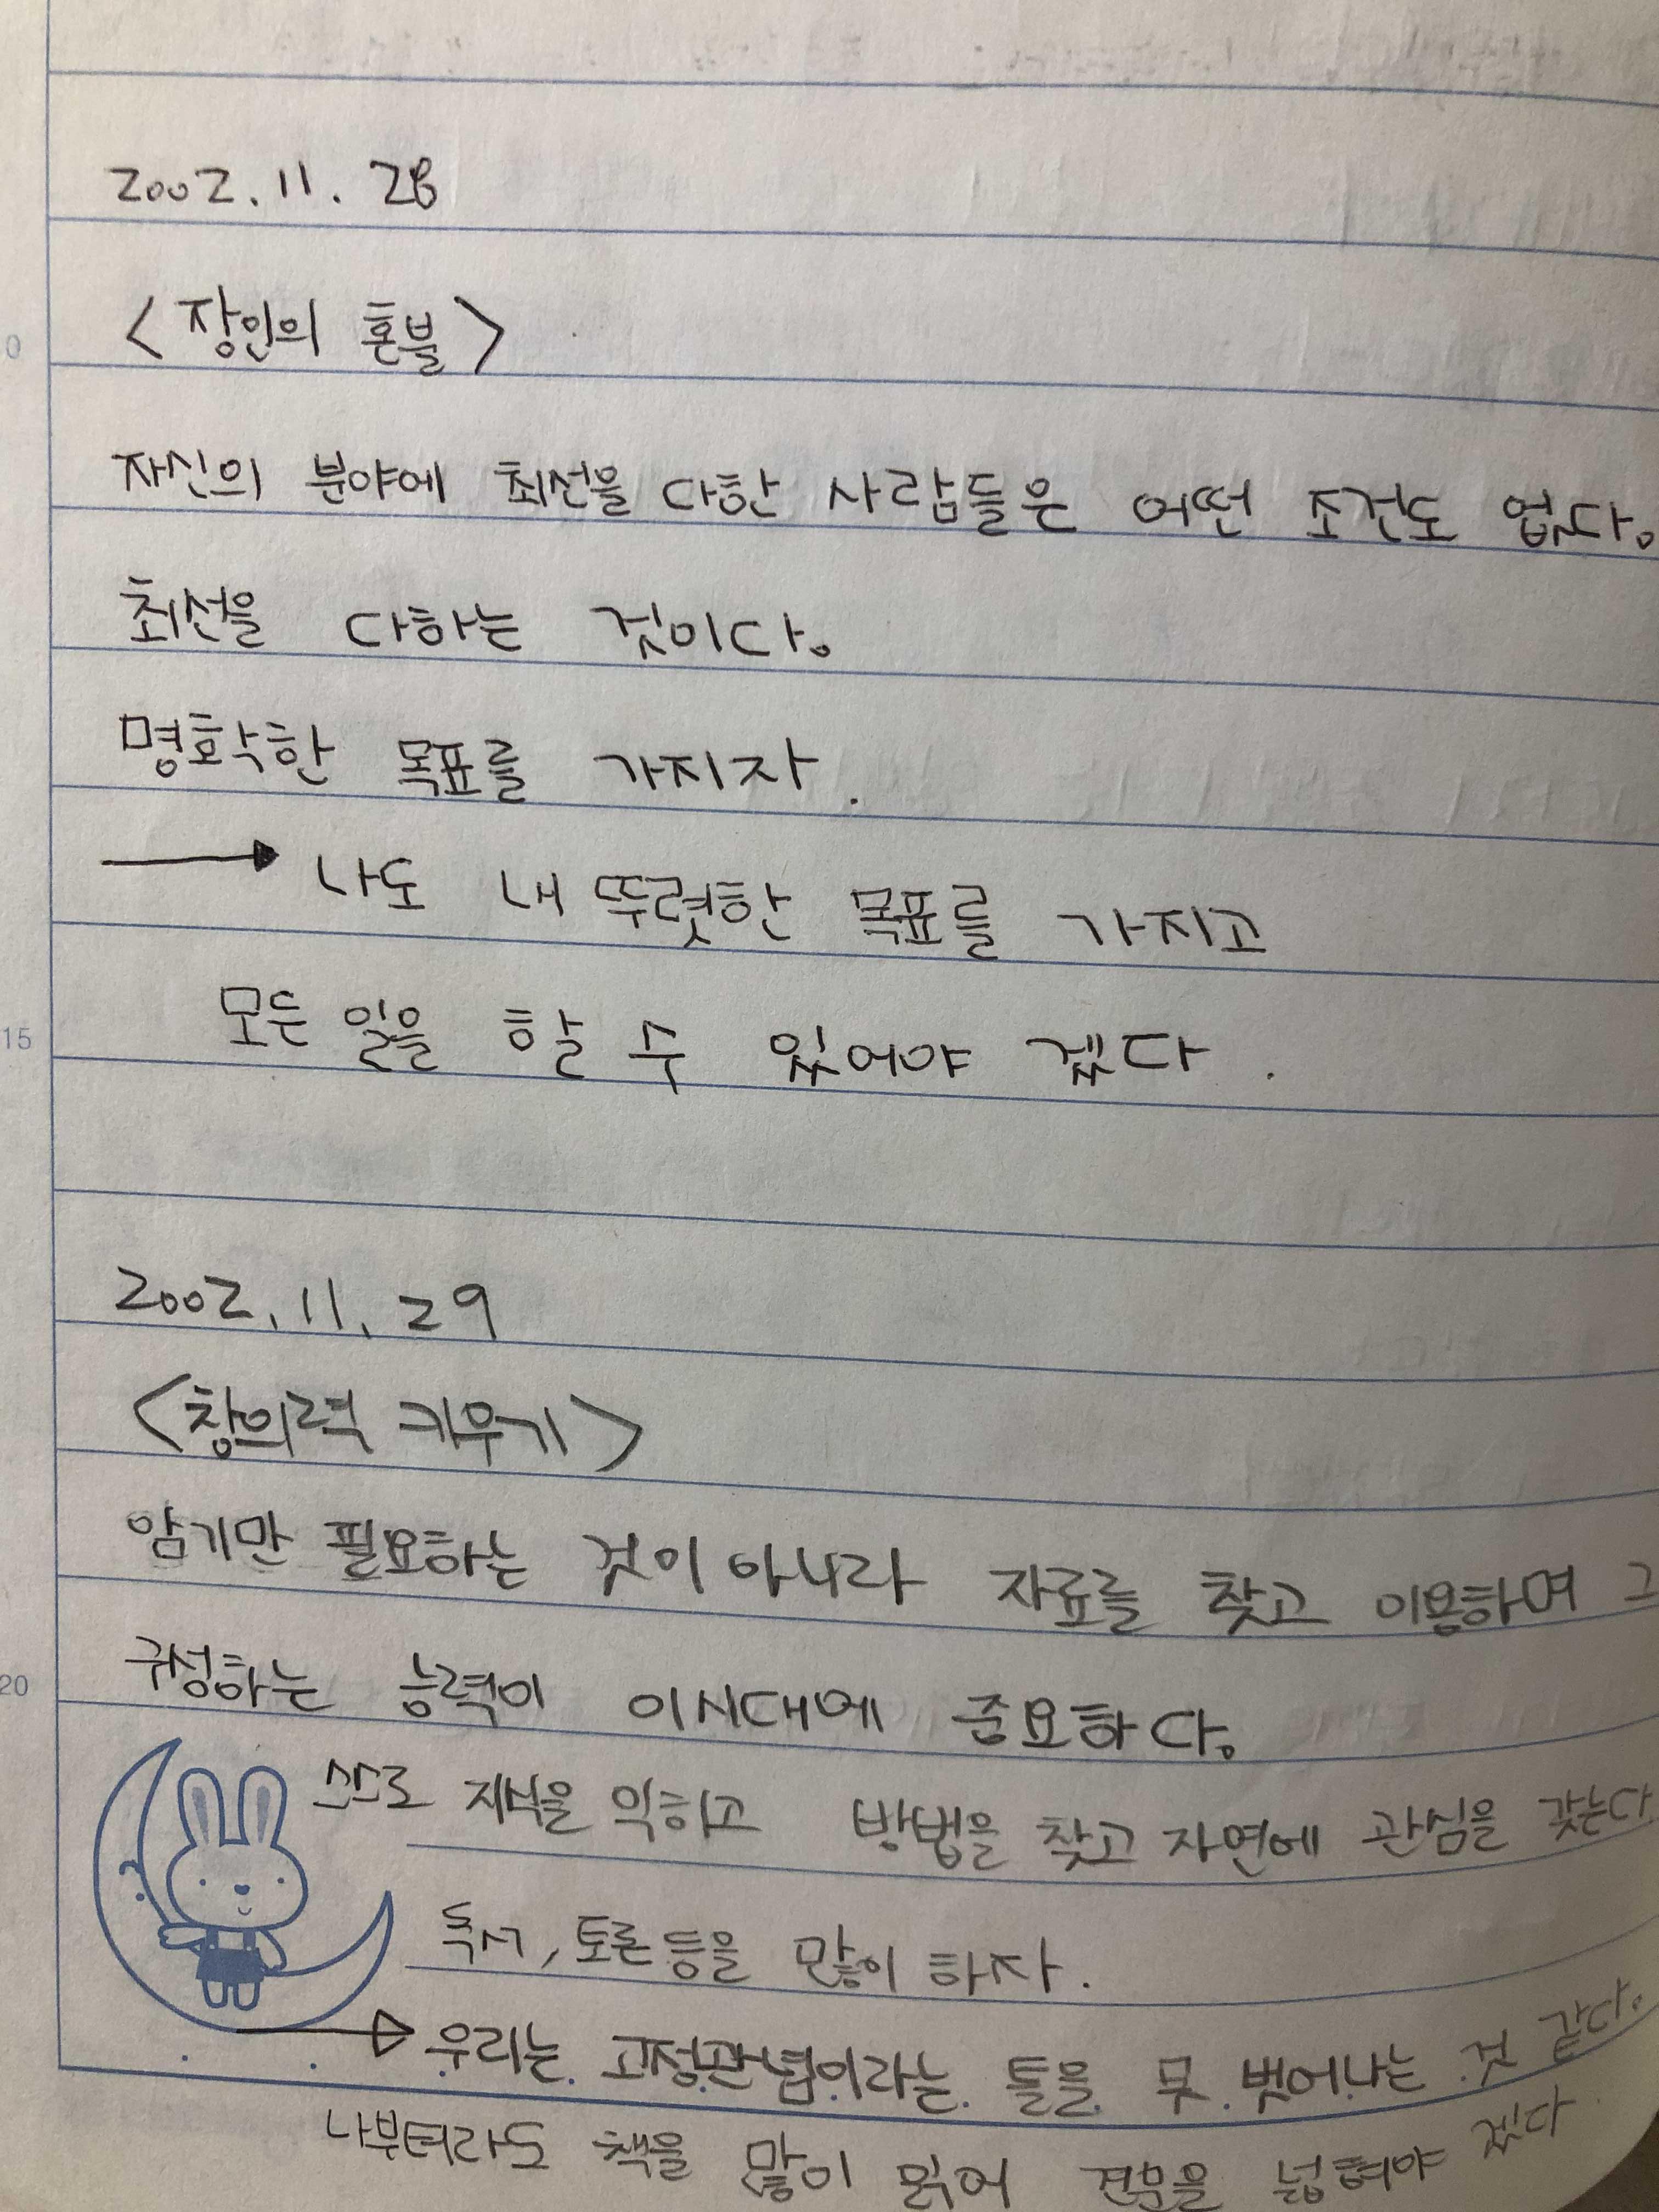 2002.11.28
0
<장인의 혼불>
자신의 분야에 최선을 다한 사람들은 어떤 조건도 없다.
최선을 다하는 것이다.
명확한 목표를 가지자.
나도 내 뚜렷한 목표를 가지고
15
모든 일을 할 수 있어야 겠다.
2002.11.29
<창의력 키우기>
암기만 필요하는 것이 아니라 자료를 찾고 이용하며 그
20
구성하는 능력이 이시대에 중요하다.
스스로 지식을 익히고 방법을 찾고 자연에 관심을 갖는다
독서, 토론 등을 많이 하자.
우리는 고정관념이라는 틀을 못 벗어나는 것 같다.
나부터라도 책을 많이 읽어 견문을 넓혀야 겠다